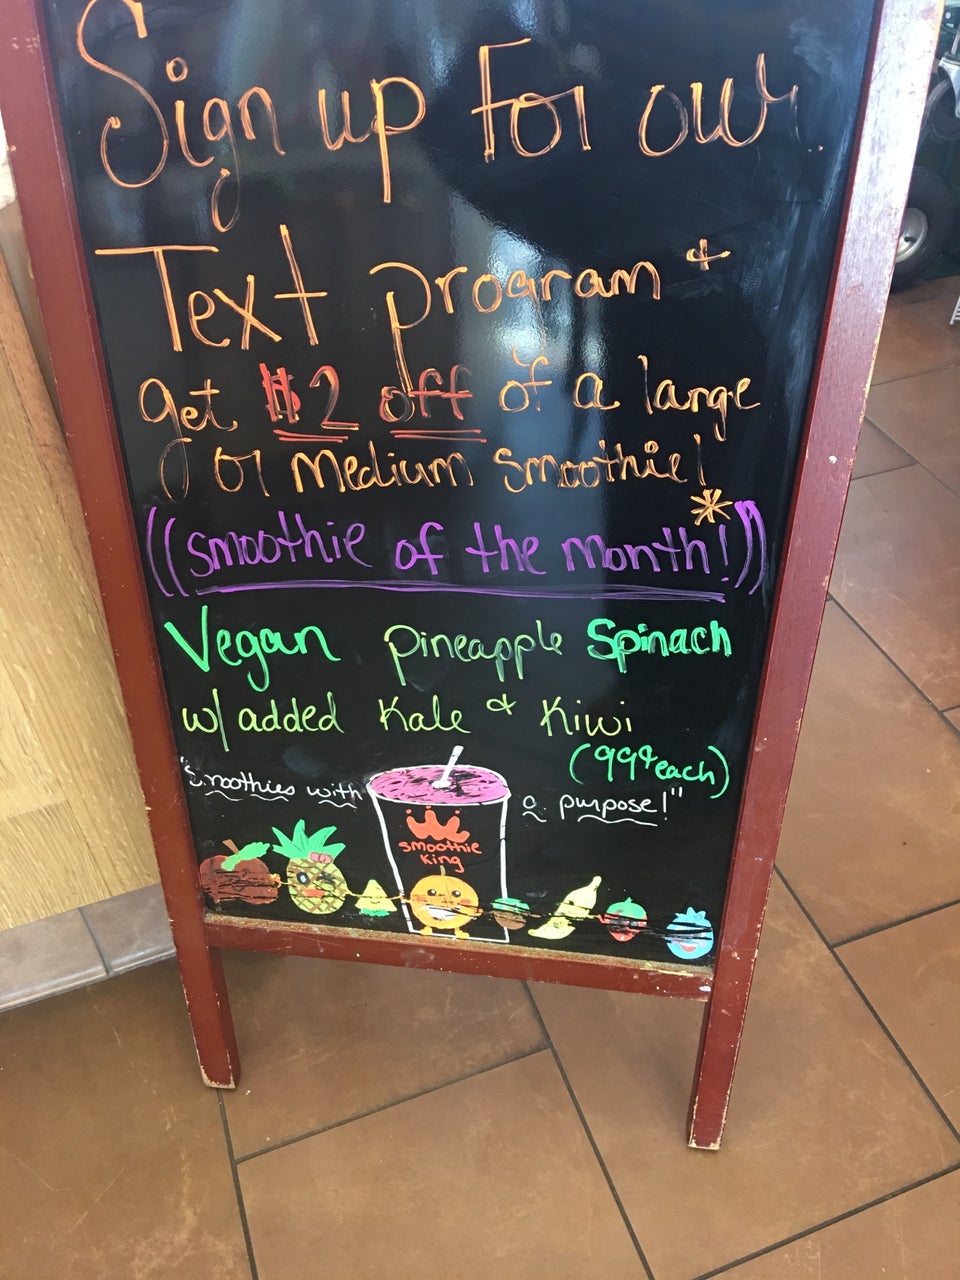 Sign up for our
Text program +
get $2 off of a large
or Medium smoothie!
((smoothie of the month!*))
Vegan Pineapple Spinach
w/ added Kale & Kiwi
(99¢ each)
"Smoothies with a purpose!"
smoothie
King